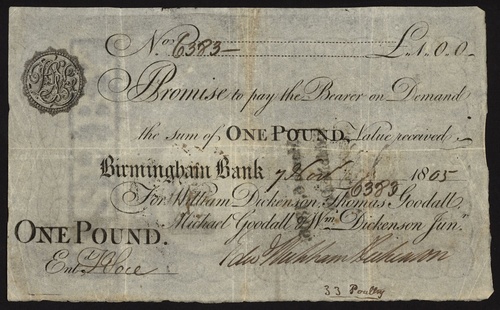 No. 6383 £1.0.0
I Promise to pay the Bearer on Demand
the sum of ONE POUND. Value received
Birmingham Bank 7 Novr 1805
6383
For William Dickenson, Thomas Goodall
Michael Goodall & Wm Dickenson Junr
ONE POUND.
Entd
Dickenson
33 Poultry